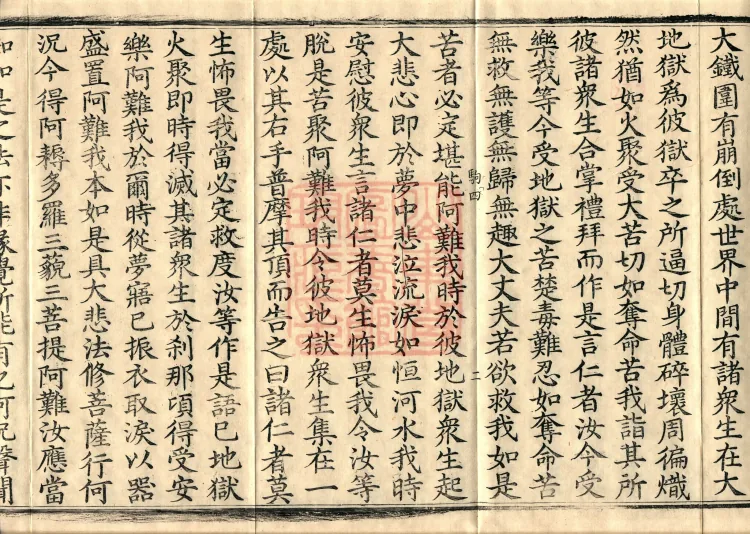 大鐵圍有崩倒處世界中間有諸衆生在大
地獄爲彼獄卒之所逼切身體碎壞周徧熾
然猶如火聚受大苦切如奪命苦我詣其所
彼諸衆生合掌禮拜而作是言仁者汝今受
樂我等今受地獄之苦楚毒難忍如奪命苦
無救無護無歸無趣大丈夫若欲救我如是
駒四
二
苦者必定堪能阿難我時於彼地獄衆生起
大悲心即於夢中悲泣流淚如恒河水我時
安慰彼衆生言諸仁者莫生怖畏我令汝等
脫是苦聚阿難我時令彼地獄衆生集在一
處以其右手普摩其頂而告之曰諸仁者莫
生怖畏我當必定救度汝等作是語已地獄
火聚即時得滅其諸衆生於刹那頃得受安
樂阿難我於爾時從夢寤已振衣取淚以器
盛置阿難我本如是具大悲法修菩薩行何
況今得阿耨多羅三藐三菩提阿難汝應當
知如是之法非緣覺所能有之何況聲聞